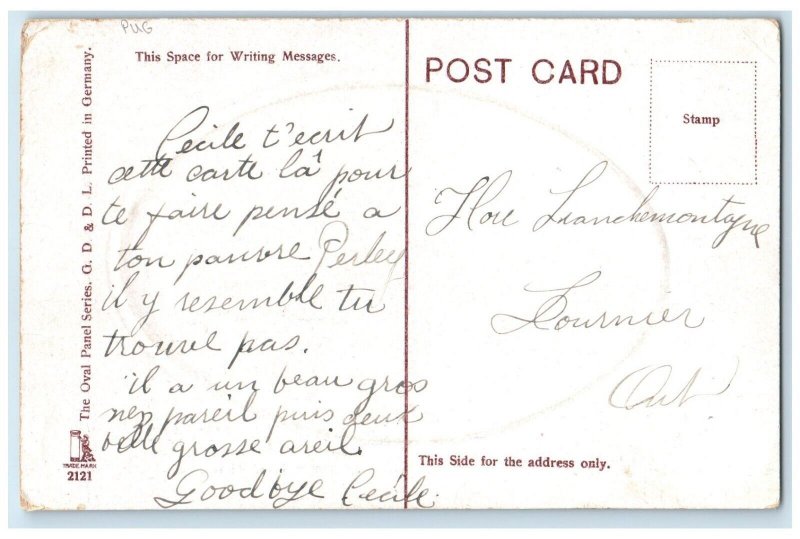 PUG
This Space for Writing Messages.
Cécile t'ecrit
cette carte là pour
te faire pensé a
ton pauvre Perley
il y resemble tu
trouve pas.
il a un beau gros
nez pareil puis deux
belle grosse areil.
Goodbye Cécile.
The Oval Panel Series. G. D. & D. L. Printed in Germany.
TRADE MARK
2121
POST CARD
Stamp
Flore Lranchemontagne
Fournier
Ont
This Side for the address only.